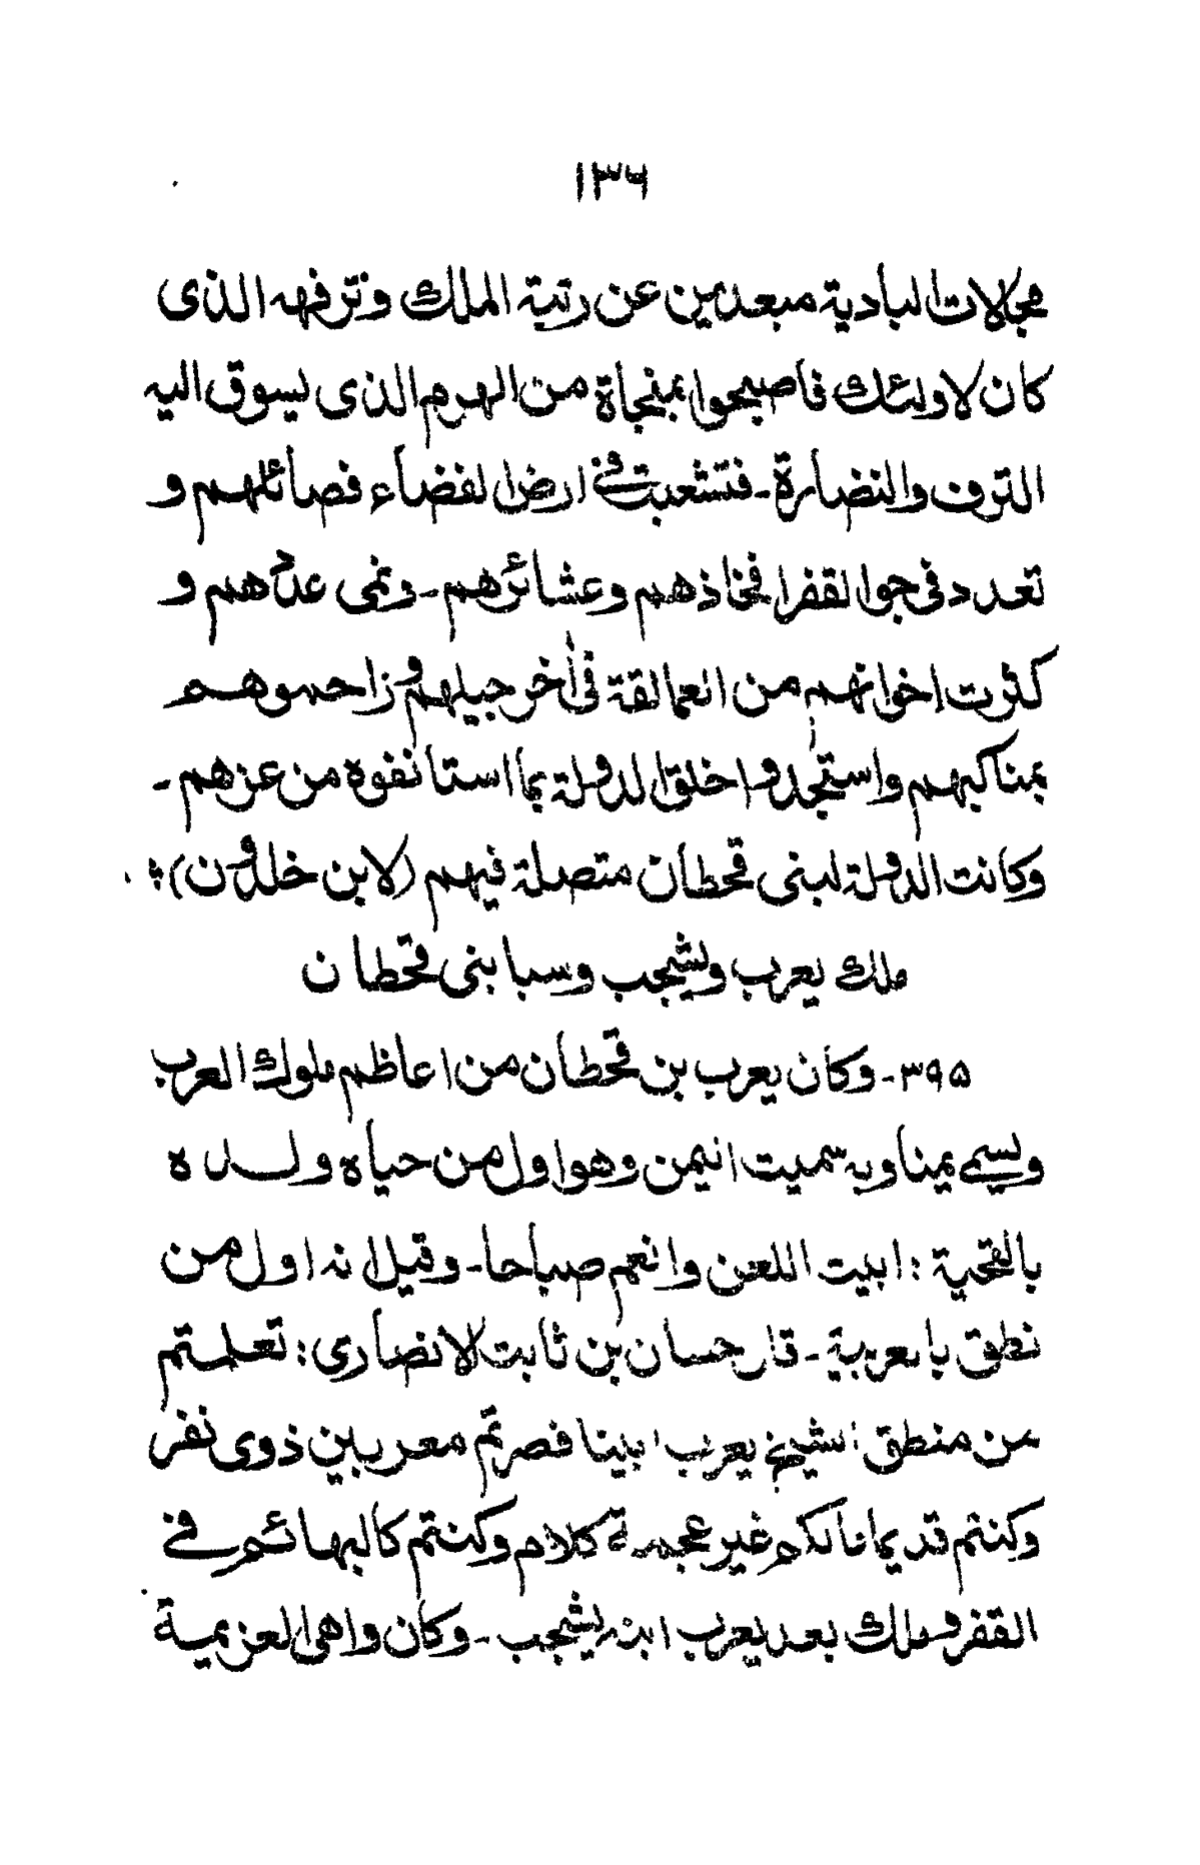 ١٣٦
مجالات البادية مبعدين عن رتبة الملك وترفهه الذى
كان لاولئك فاصبحوا بمنجاة من الهرم الذى يسوق اليه
الترف والنضارة ـ فتشعبت فى ارض الفضاء فصائلهم و
تعدد فى جو القفر افخاذهم وعشائرهم ـ ونمى عددهم و
كثرت اخوانهم من العمالقة فى أخر جيلهم وزاحموهم
بمناكبهم واستجدوا خلق الدولة بما استانفوه من عزهم ـ
وكانت الدولة لبنى قحطان متصلة فيهم (لابن خلدون)؛
ملك يعرب ويشجب وسبا بنى قحطان
٣٩٥ ـ وكان يعرب بن قحطان من اعاظم ملوك العرب
ويسمى يمنا وبه سميت اليمن وهو اول من حياه ولده
بالتحية : ابيت اللعن وانعم صباحا ـ وقيل انه اول من
نطق بالعربية ـ قال حسان بن ثابت الانصارى: تعلمتم
من منطق الشيخ يعرب ابينا فصرتم معربين ذوى نفر
وكنتم قديما ما لكم غير عجمة كلام وكنتم كالبهائم فى
القفر وملك بعد يعرب ابنه يشجب ـ وكان واهى العزيمة